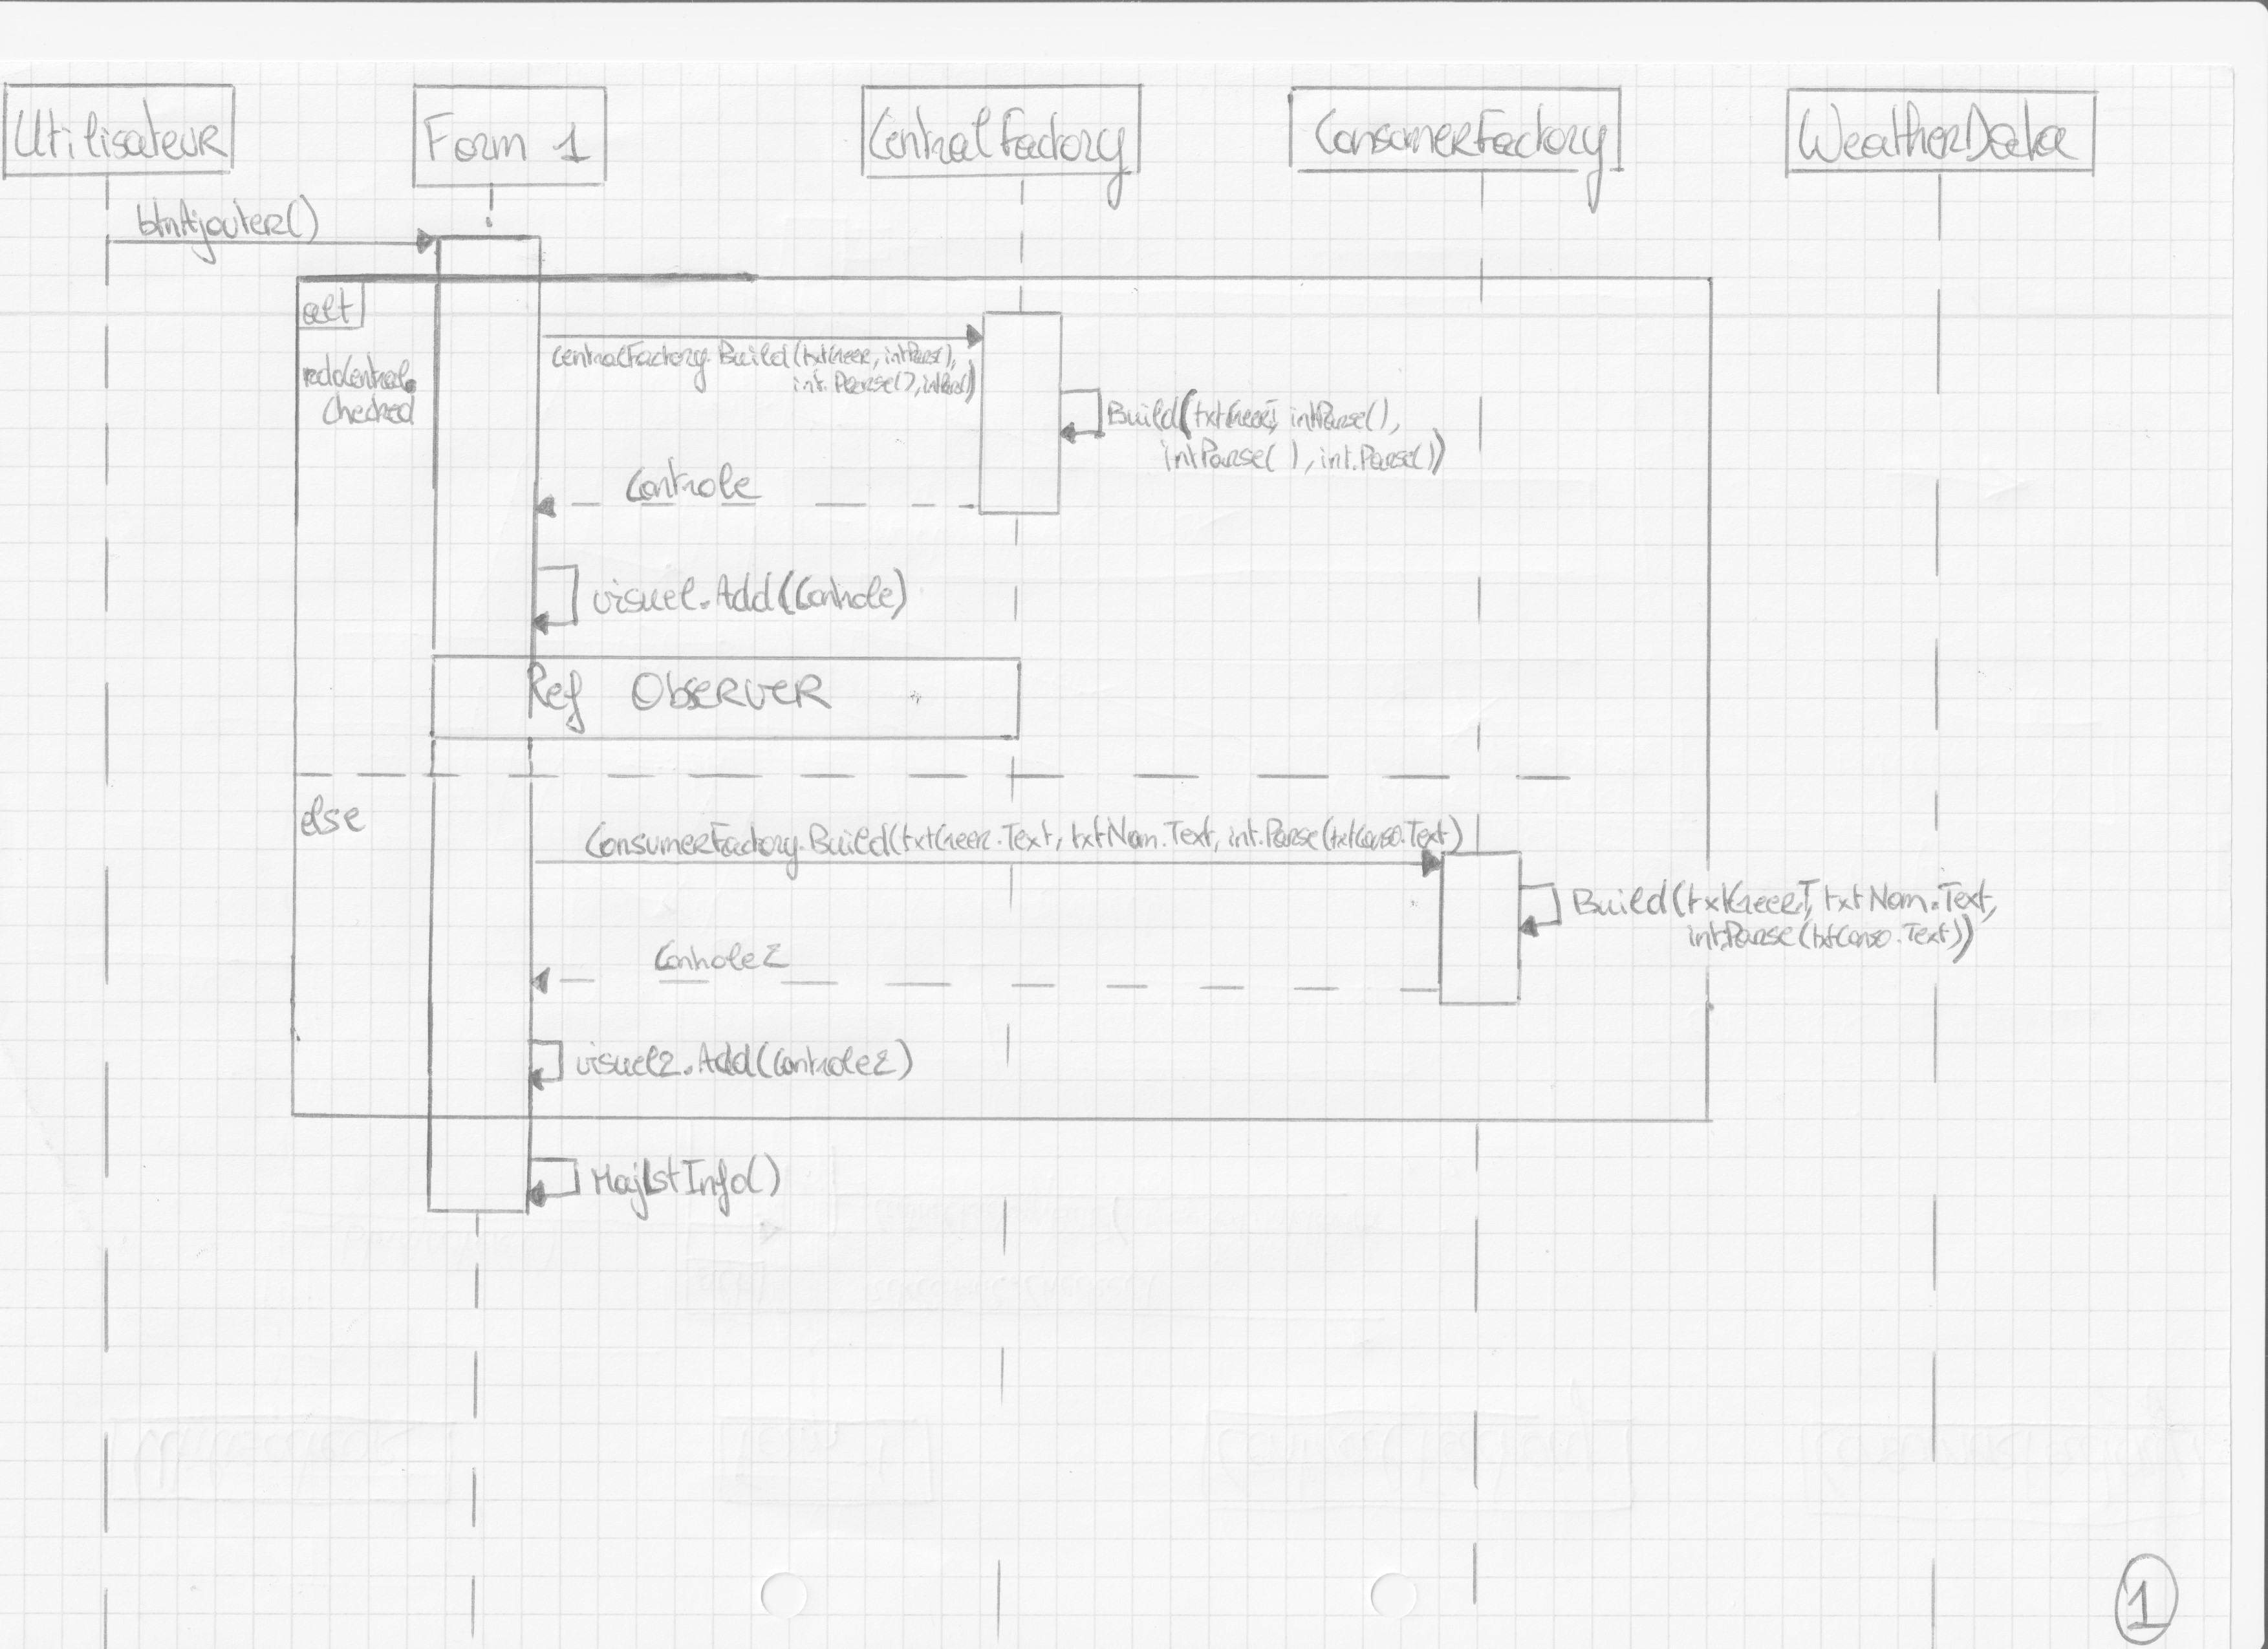 Utilisateur
Form 1
CentralFactory
ConsumerFactory
WeatherData
btnAjouter()
alt
CentralFactory.Build(txtCreer, intParse(),
int.Parse(), intParse())
radCentral.
Checked
Build(txtCreer, intParse(),
intParse( ), int.Parse())
Controle
visuel.Add(Controle)
Ref Observer
else
ConsumerFactory.Build(txtCreer.Text, txtNom.Text, int.Parse(txtConso.Text)
Build(txtCreer.T, txtNom.Text,
int.Parse(txtConso.Text))
Controle2
visuel2.Add(Controle2)
MajLstInfo()
1